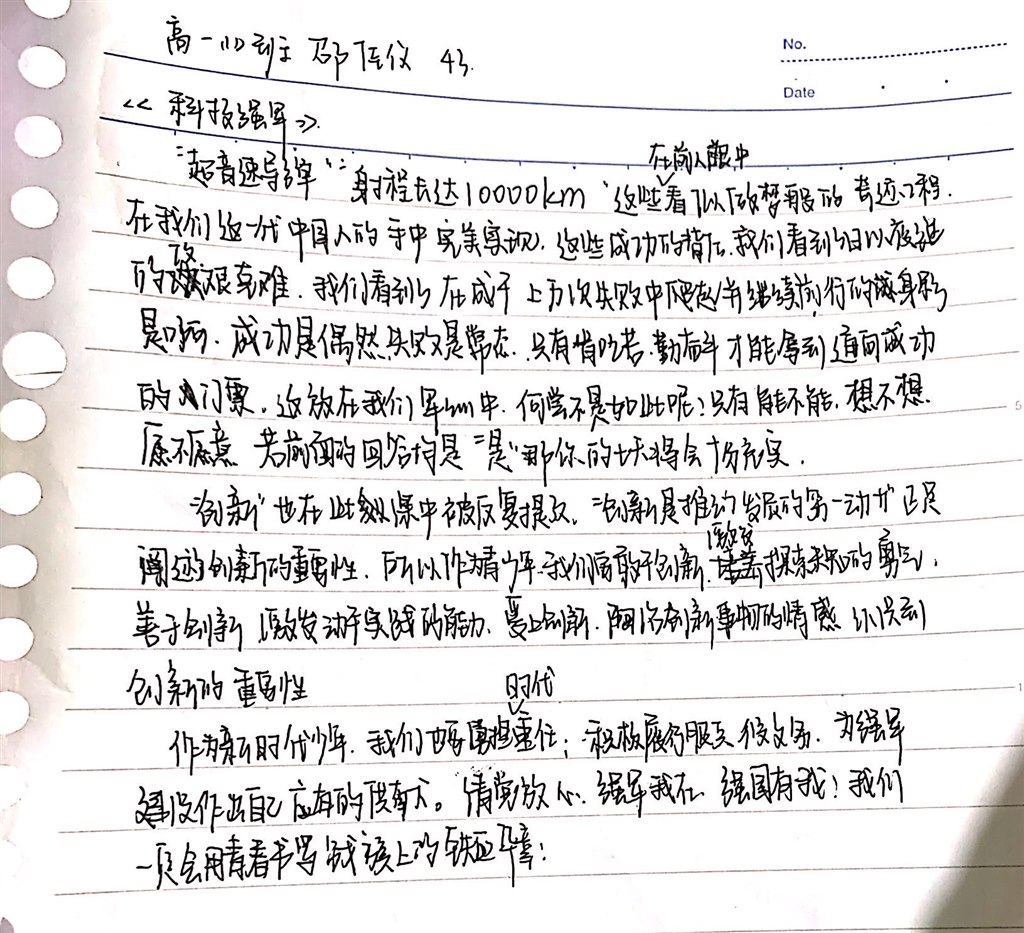 高一(1)班 邵佳仪 43.
No.
Date
《科技强军》.
在前人眼中
"超音速导弹""射程长达10000km"这些看似做梦般的奇迹工程.
在我们这一代中国人的手中完美实现. 这些成功的背后,我们看到了日以夜继
的艰克难. 我们看到了在成千上万次失败中爬起并继续前行的身影
是啊. 成功是偶然,失败是常态. 只有肯吃苦.勤奋斗才能拿到通向成功
的门票. 这放在我们军中. 何尝不是如此呢?只有能不能. 想不想
愿不愿意 若前面的回答均是"是"那你的一天将会十分充实.
"创新"也在此课中被反复提及. "创新是推动发展的第一动力"已足
阐述了创新的重要性. 所以作为青少年.我们需敢于创新. 激发探索未知的勇气.
善于创新 激发动手实践的能力. 爱上创新. 创新事物的情感 认识到
创新的重要性
时代
作为新时代少年. 我们也要勇担重任; 积极履行服兵役义务. 为强军
建设作出自己应有的贡献。请党放心. 强军我在 强国有我! 我们
一定会用青春书写战旗上的铁血华章!
5
1